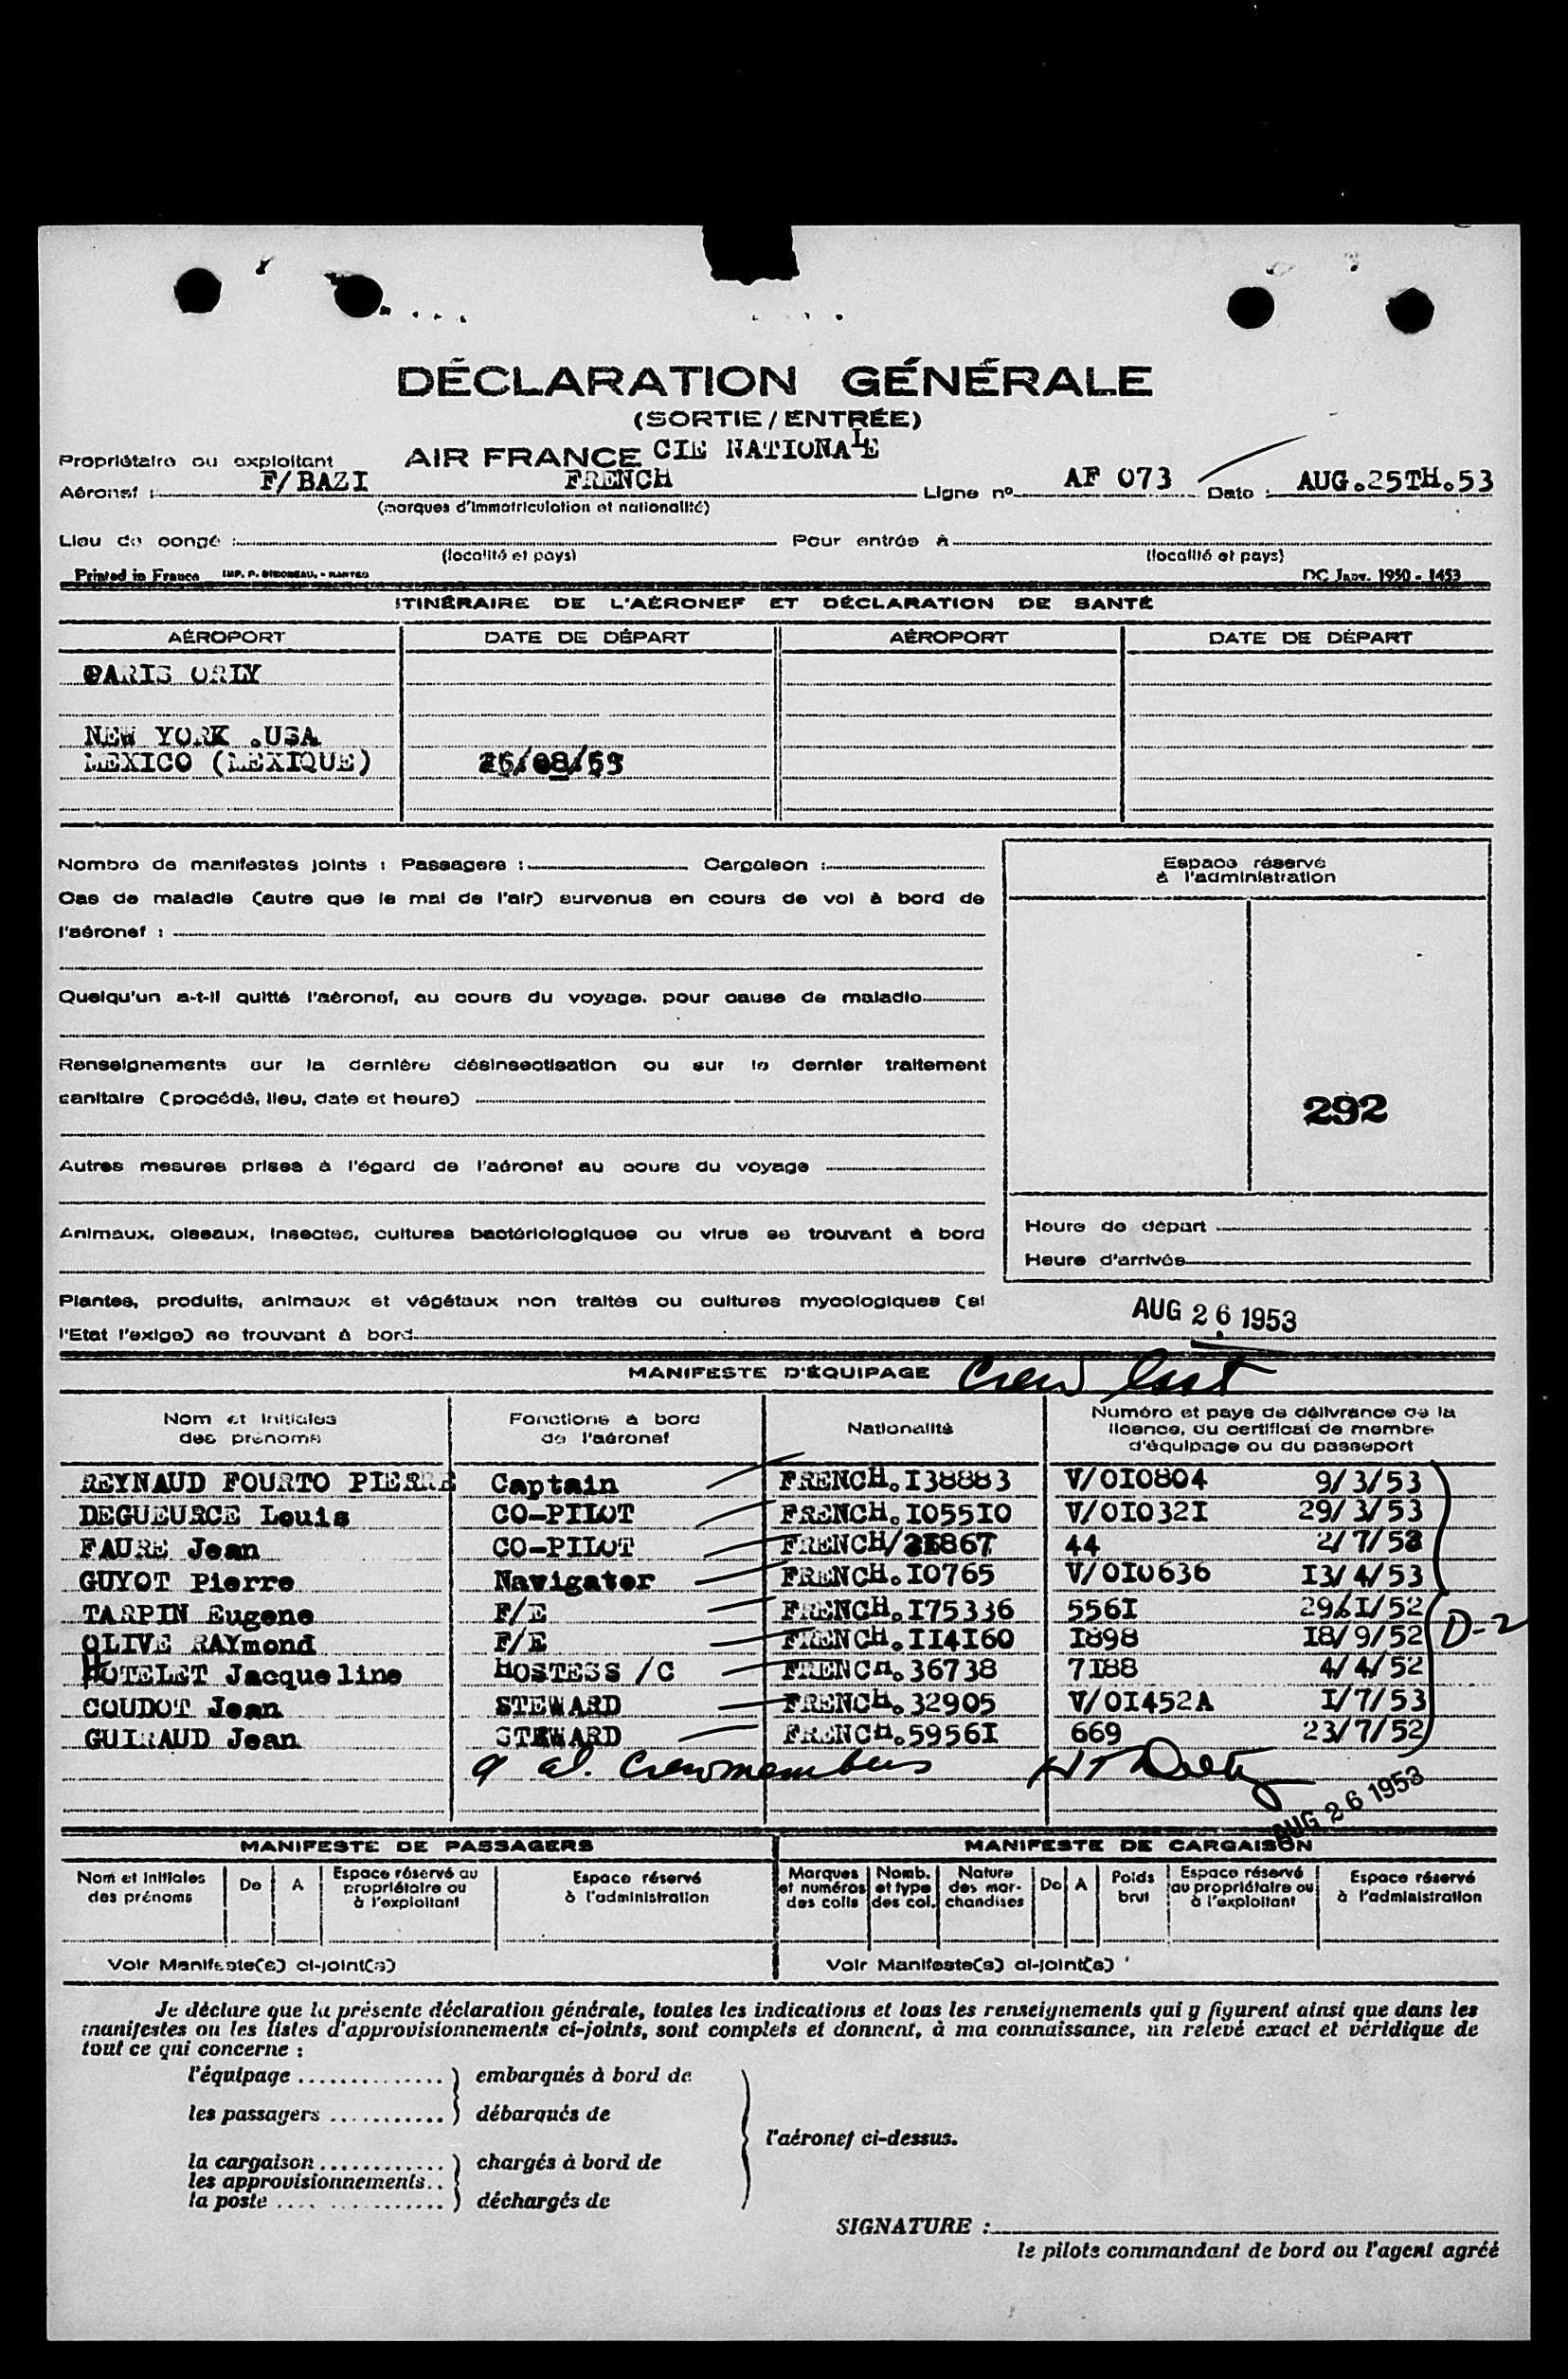 DÉCLARATION GÉNÉRALE
(SORTIE / ENTRÉE)
Propriétaire ou exploitant AIR FRANCE CIE NATIONALE
Aéronef : F/BAZI FRENCH Ligne nº AF 073 Date : AUG.25TH.53
(marques d'immatriculation et nationalité)
Lieu de congé : Pour entrée à
(localité et pays) (localité et pays)
Printed in France IMP. P. NANTES DC Janv. 1950 - 1453
ITINÉRAIRE DE L'AÉRONEF ET DÉCLARATION DE SANTÉ
AÉROPORT DATE DE DÉPART AÉROPORT DATE DE DÉPART
PARIS ORLY
NEW YORK .USA
MEXICO (MEXIQUE) /08/53
Nombre de manifestes joints : Passagers : Cargaison :
Cas de maladie (autre que le mal de l'air) survenus en cours de vol à bord de
l'aéronef :
Quelqu'un a-t-il quitté l'aéronef, au cours du voyage, pour cause de maladie
Renseignements sur la dernière désinsectisation ou sur le dernier traitement
sanitaire (procédé, lieu, date et heure)
Autres mesures prises à l'égard de l'aéronef au cours du voyage
Animaux, oiseaux, insectes, cultures bactériologiques ou virus se trouvant à bord
Plantes, produits, animaux et végétaux non traités ou cultures mycologiques (si
l'Etat l'exige) se trouvant à bord
Espace réservé
à l'administration
292
Heure de départ
Heure d'arrivée
AUG 26 1953
MANIFESTE D'ÉQUIPAGE Crew list
Nom et initiales des prénoms Fonctions à bord de l'aéronef Nationalité Numéro et pays de délivrance de la licence, du certificat de membre d'équipage ou du passeport
REYNAUD FOURTO PIERRE Captain FRENCH.I38883 V/OI0804 9/3/53
DEGUEURCE Louis CO-PILOT FRENCH.I055IO V/OIO32I 29/3/53
FAURE Jean CO-PILOT FRENCH/ 867 44 2/7/53
GUYOT Pierre Navigator FRENCH.IO765 V/OI0636 I3/4/53
TARPIN Eugene F/E FRENCH.I75336 556I /52
OLIVE RAYmond F/E FRENCH.II4I60 I898 I8/9/52 D-2
HOTELET Jacqueline HOSTESS /C FRENCH.36738 7I88 4/4/52
COUDOT Jean STEWARD FRENCH.32905 V/OI452A I/7/53
GUIRAUD Jean STEWARD FRENCH.5956I 669 23/7/52
9 al. Crewmembers
AUG 26 1953
MANIFESTE DE PASSAGERS MANIFESTE DE CARGAISON
Nom et initiales des prénoms De A Espace réservé au propriétaire ou à l'exploitant Espace réservé à l'administration Marques et numéros des colis Nomb. et type des col. Nature des mar-chandises De A Poids brut Espace réservé au propriétaire ou à l'exploitant Espace réservé à l'administration
Voir Manifeste(s) ci-joint(s) Voir Manifeste(s) ci-joint(s)
Je déclare que la présente déclaration générale, toutes les indications et tous les renseignements qui y figurent ainsi que dans les
manifestes ou les listes d'approvisionnements ci-joints, sont complets et donnent, à ma connaissance, un relevé exact et véridique de
tout ce qui concerne :
l'équipage .............. embarqués à bord de
les passagers ........... débarqués de
l'aéronef ci-dessus.
la cargaison ............ chargés à bord de
les approvisionnements..
la poste ................ déchargés de
SIGNATURE :
le pilote commandant de bord ou l'agent agréé